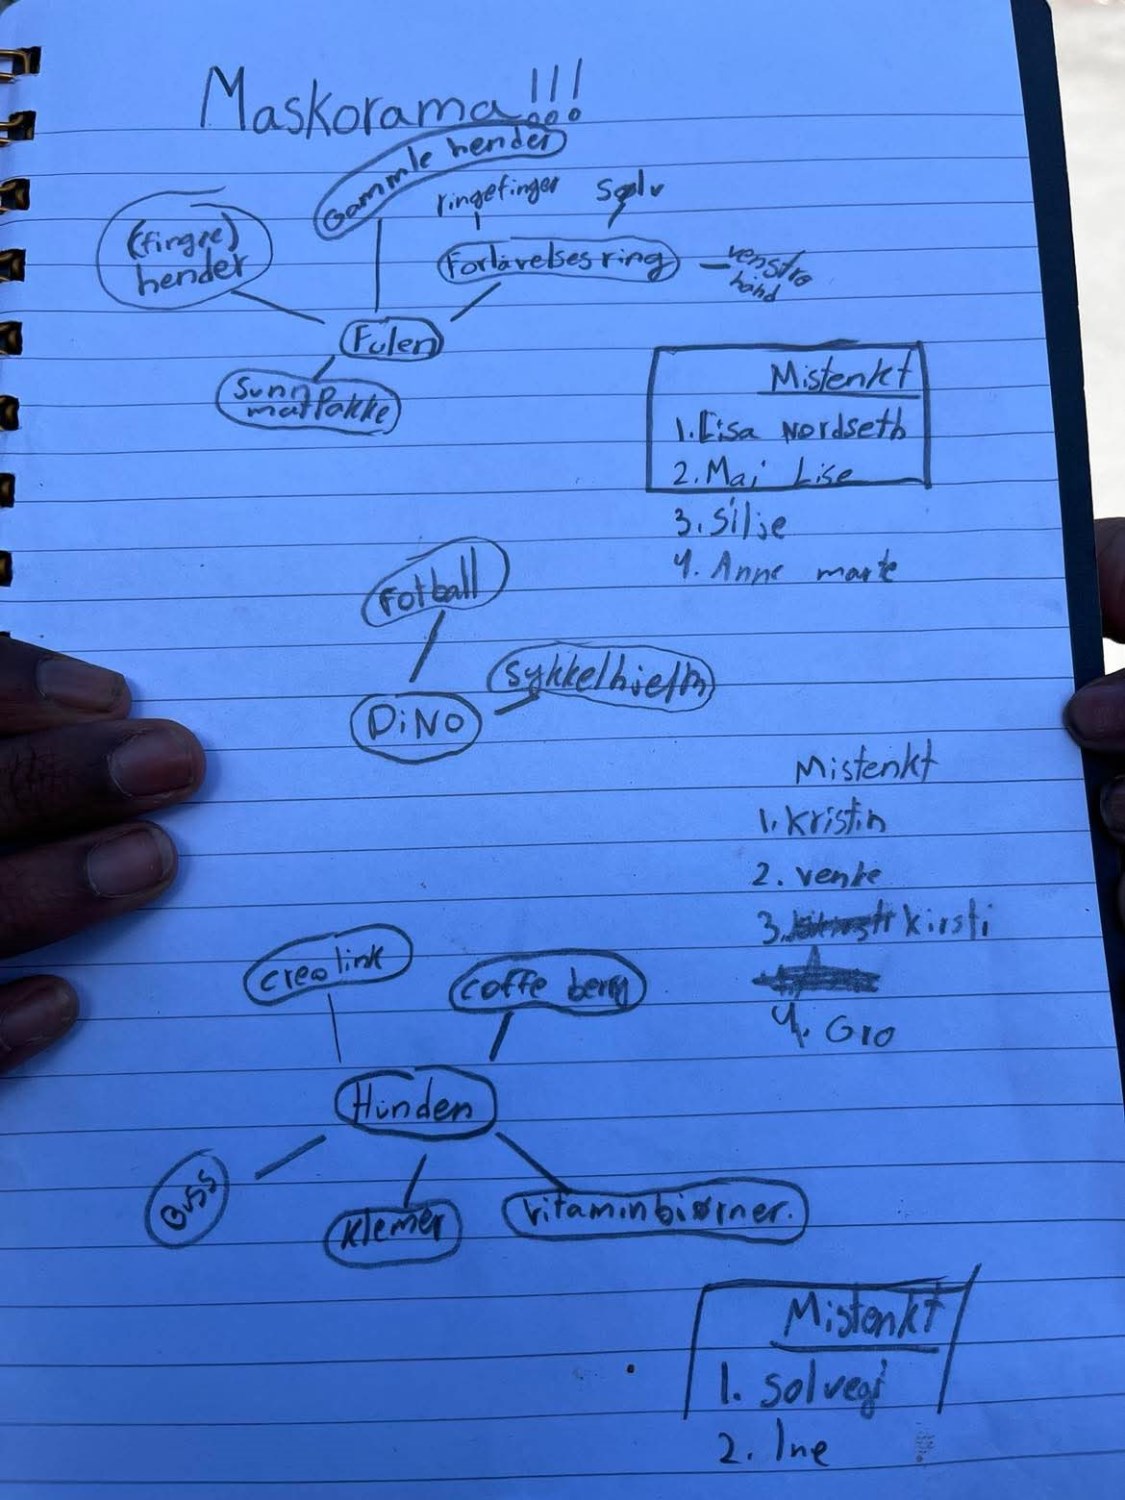 Maskorama!!!
Gammle hender
ringefinger
Sølv
(fingre)
hender
Forlavelsesring
venstre
hånd
Fulen
Sunn
matPakke
Mistenkt
1. Lisa Nordseth
2. Mai Lise
3. Silje
4. Anne marte
Fotball
sykkelhjelm
DiNO
Mistenkt
1. Kristin
2. venke
3. kirsti
4. Gro
crea link
coffe berry
Hunden
Buss
Klemer
Vitaminbiørner.
Mistenkt
1. Solvegi
2. Ine